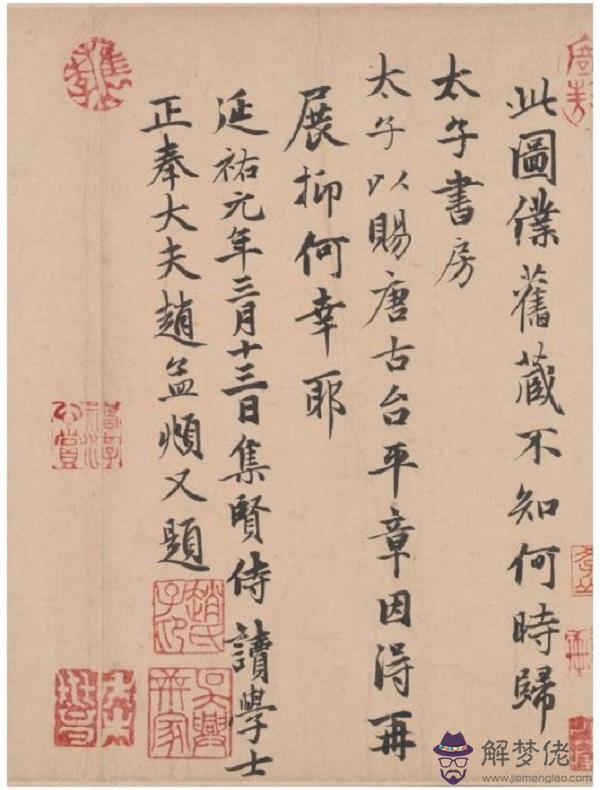 此圖僕舊藏不知何時歸
太子書房
太子以賜唐古台平章因得再
展抑何幸耶
延祐元年三月十三日集賢侍讀學士
正奉大夫趙孟頫又題
趙氏子印
吳興
解梦佬
www.jiemenglao.com